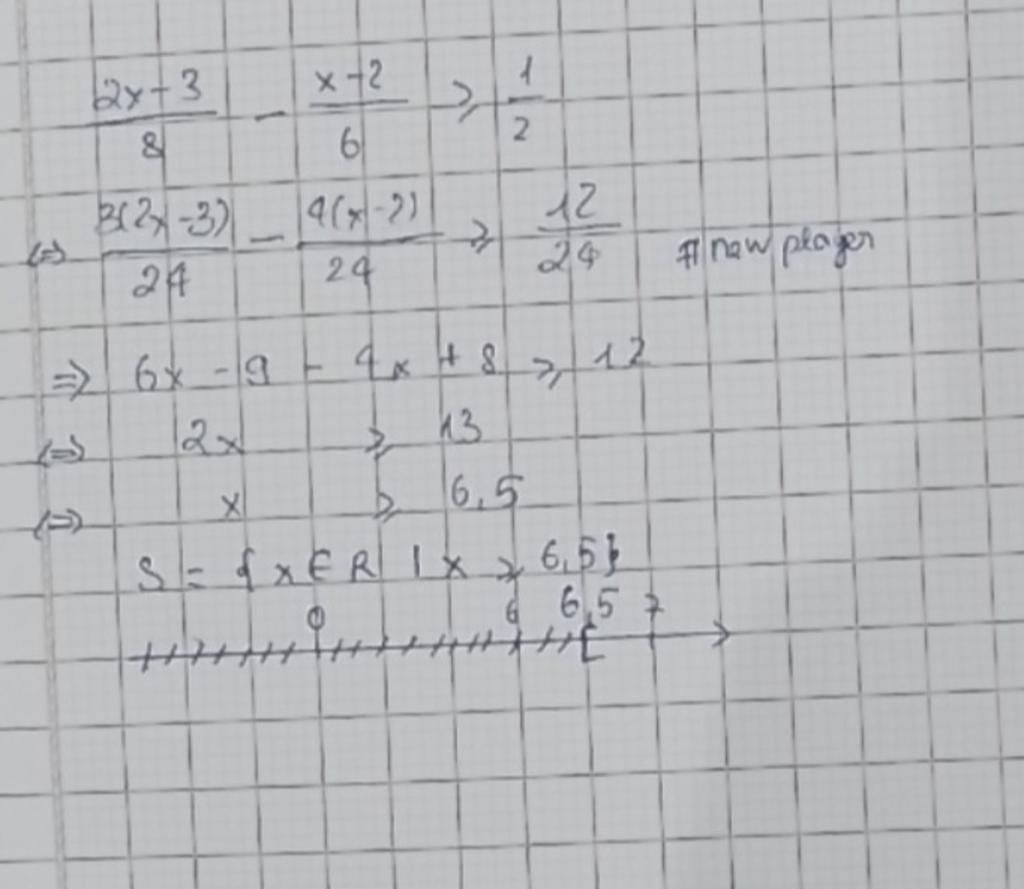 (2x-3)/8 - (x-2)/6 ≥ 1/2
⇔ 3(2x-3)/24 - 4(x-2)/24 ≥ 12/24 # new player
⇒ 6x - 9 - 4x + 8 ≥ 12
⇔ 2x ≥ 13
⇔ x ≥ 6,5
S = {x ∈ R | x ≥ 6,5}
0 6 6,5 7